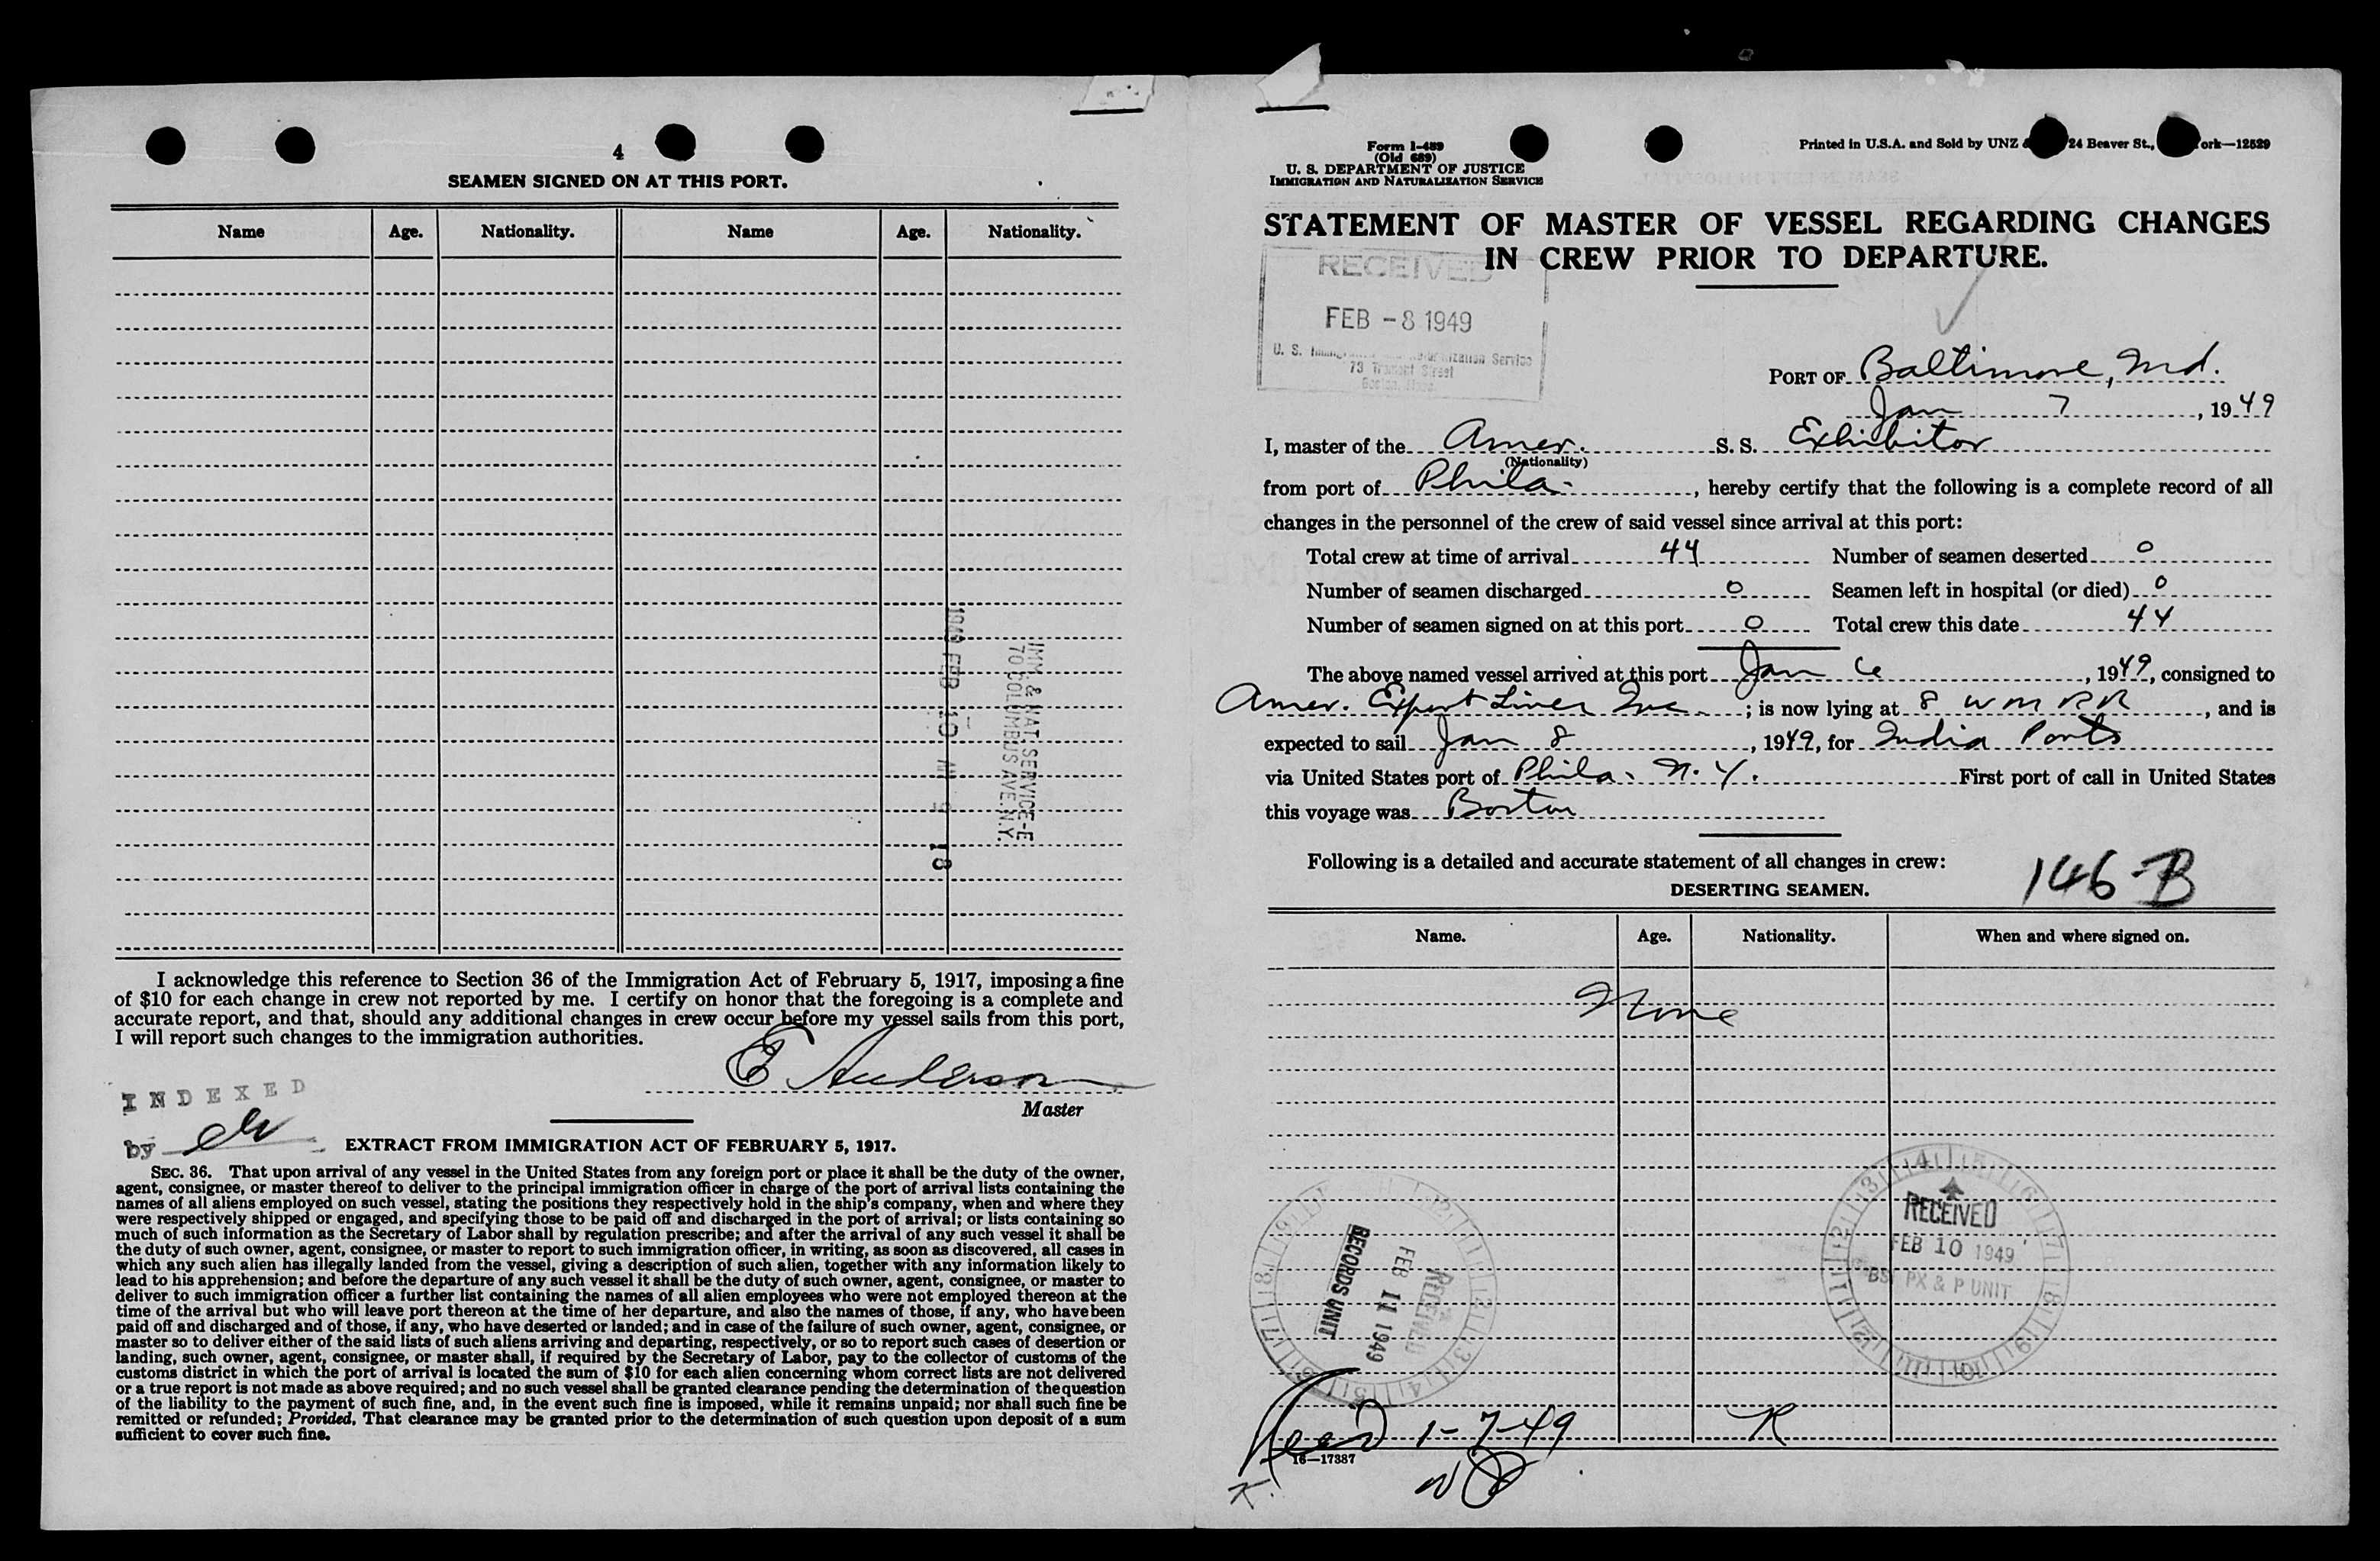 4
SEAMEN SIGNED ON AT THIS PORT.
Name Age. Nationality. Name Age. Nationality.
1949 FEB 10 AM 9 18
IMM. & NAT. SERVICE-E
70 COLUMBUS AVE. N.Y.
I acknowledge this reference to Section 36 of the Immigration Act of February 5, 1917, imposing a fine
of $10 for each change in crew not reported by me. I certify on honor that the foregoing is a complete and
accurate report, and that, should any additional changes in crew occur before my vessel sails from this port,
I will report such changes to the immigration authorities.
E Anderson
Master
INDEXED
by
EXTRACT FROM IMMIGRATION ACT OF FEBRUARY 5, 1917.
SEC. 36. That upon arrival of any vessel in the United States from any foreign port or place it shall be the duty of the owner,
agent, consignee, or master thereof to deliver to the principal immigration officer in charge of the port of arrival lists containing the
names of all aliens employed on such vessel, stating the positions they respectively hold in the ship's company, when and where they
were respectively shipped or engaged, and specifying those to be paid off and discharged in the port of arrival; or lists containing so
much of such information as the Secretary of Labor shall by regulation prescribe; and after the arrival of any such vessel it shall be
the duty of such owner, agent, consignee, or master to report to such immigration officer, in writing, as soon as discovered, all cases in
which any such alien has illegally landed from the vessel, giving a description of such alien, together with any information likely to
lead to his apprehension; and before the departure of any such vessel it shall be the duty of such owner, agent, consignee, or master to
deliver to such immigration officer a further list containing the names of all alien employees who were not employed thereon at the
time of the arrival but who will leave port thereon at the time of her departure, and also the names of those, if any, who have been
paid off and discharged and of those, if any, who have deserted or landed; and in case of the failure of such owner, agent, consignee, or
master so to deliver either of the said lists of such aliens arriving and departing, respectively, or so to report such cases of desertion or
landing, such owner, agent, consignee, or master shall, if required by the Secretary of Labor, pay to the collector of customs of the
customs district in which the port of arrival is located the sum of $10 for each alien concerning whom correct lists are not delivered
or a true report is not made as above required; and no such vessel shall be granted clearance pending the determination of the question
of the liability to the payment of such fine, and, in the event such fine is imposed, while it remains unpaid; nor shall such fine be
remitted or refunded; Provided, That clearance may be granted prior to the determination of such question upon deposit of a sum
sufficient to cover such fine.
Form I-489
(Old 689)
U. S. DEPARTMENT OF JUSTICE
IMMIGRATION AND NATURALIZATION SERVICE
Printed in U.S.A. and Sold by UNZ & 24 Beaver St., ork—12529
STATEMENT OF MASTER OF VESSEL REGARDING CHANGES
IN CREW PRIOR TO DEPARTURE.
RECEIVED
FEB -8 1949
U. S. Service
73 Tremont Street
Boston, Mass.
PORT OF Baltimore, Md.
Jan 7, 1949
I, master of the Amer. S. S. Exhibitor
(Nationality)
from port of Phila., hereby certify that the following is a complete record of all
changes in the personnel of the crew of said vessel since arrival at this port:
Total crew at time of arrival 44 Number of seamen deserted 0
Number of seamen discharged 0 Seamen left in hospital (or died) 0
Number of seamen signed on at this port 0 Total crew this date 44
The above named vessel arrived at this port Jan 6, 1949, consigned to
Amer. Export Lines Inc.; is now lying at 8 W M R R, and is
expected to sail Jan 8, 1949, for India Ports
via United States port of Phila. N.Y. First port of call in United States
this voyage was Boston
Following is a detailed and accurate statement of all changes in crew:
146-B
DESERTING SEAMEN.
Name. Age. Nationality. When and where signed on.
None
RECEIVED
FEB 11 1949
RECORDS UNIT
RECEIVED
FEB 10 1949
PX & P UNIT
Recd 1-7-49 K
16—17387
K.